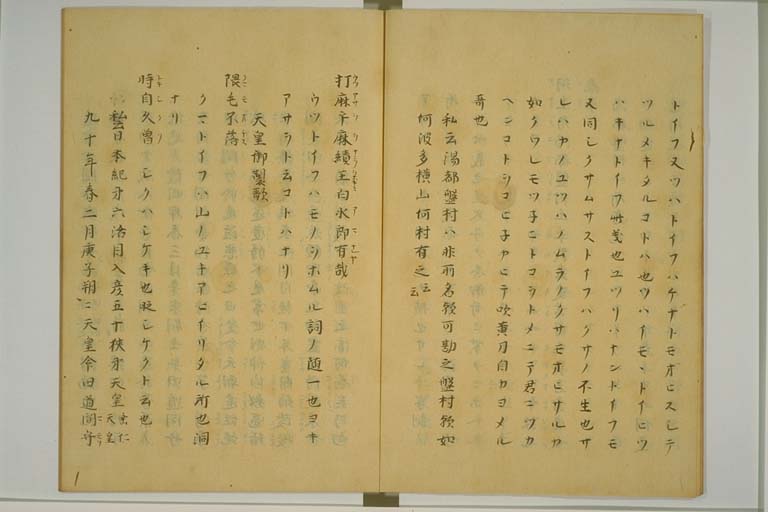 トイフ又ツハトイフハケナトモオヒスシテ
ツルメキタルコトハ也ツハイモントイヒツ
ハキナトイフ此義也ユツリハナンドイフモ
又同シクサムサストイフハクサノ不生也サ
レハカノユツハノムラノクサモオヒサルカ
如クワレモツチニトコヲトメニテ君ニツカ
ヘンコトシコヒ子カヒテ吹黄刀自カヨメル
哥也
私云湯都盤村ハ非所名歟可勘之盤村歟如
何波多横山何村有之云云
打麻乎麻績王白水郎有哉
ウツトイフハモノシホムル詞ノ随一也ヨキ
アサヲト云コトハナリ
天皇御製歌
隈毛不落
クマトイフハ山ノユキアヒイリタル所也洞
ナリ
時自久曽
シクハシケキ也 シケクト云也
私云日本紀第六活目入彦五十狭茅天皇 垂仁天皇
九十年春二月庚子朔 天皇命田道間守